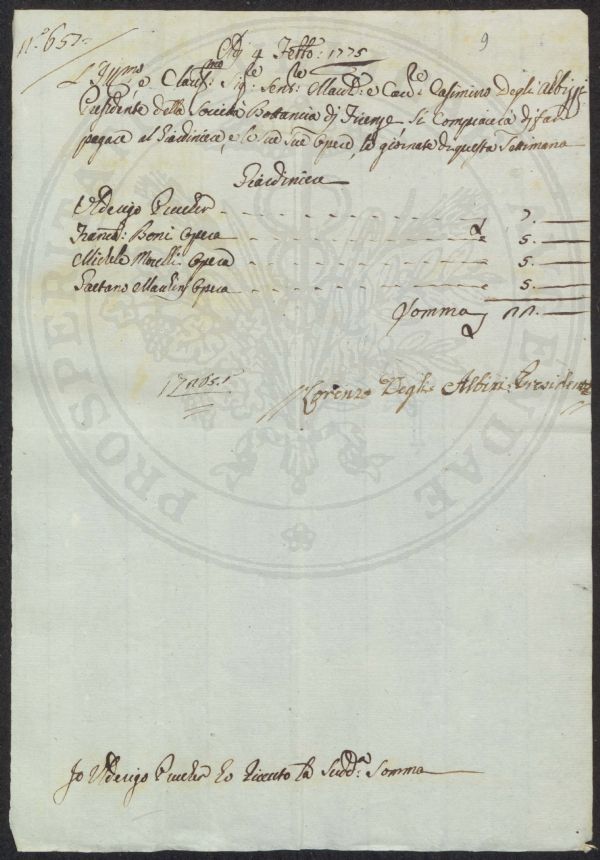 n.º 657.
9
Adj 4 Febb.º: 1775
L'Illmo, e Clariss:mo Sig:re Sen:re March: e Cav:re Casimiro Degl'Albizzi
Presidente della Società Bottanica di Firenze Si Compiacerà di far
pagare al Giardiniere, e le sue Opere, le giornate di questa Settimana
Giardiniere
Ulderigo Prucker 7.
Franc:o: Boni Opera £ 5.
Michele Morelli Opera 5.
Gaetano Opera 5.
Somma £
Lorenzo Degli Albizi Presidente
Io Ulderigo Prucker ho riceuto la Sudd:a Somma
PROSPERITATI